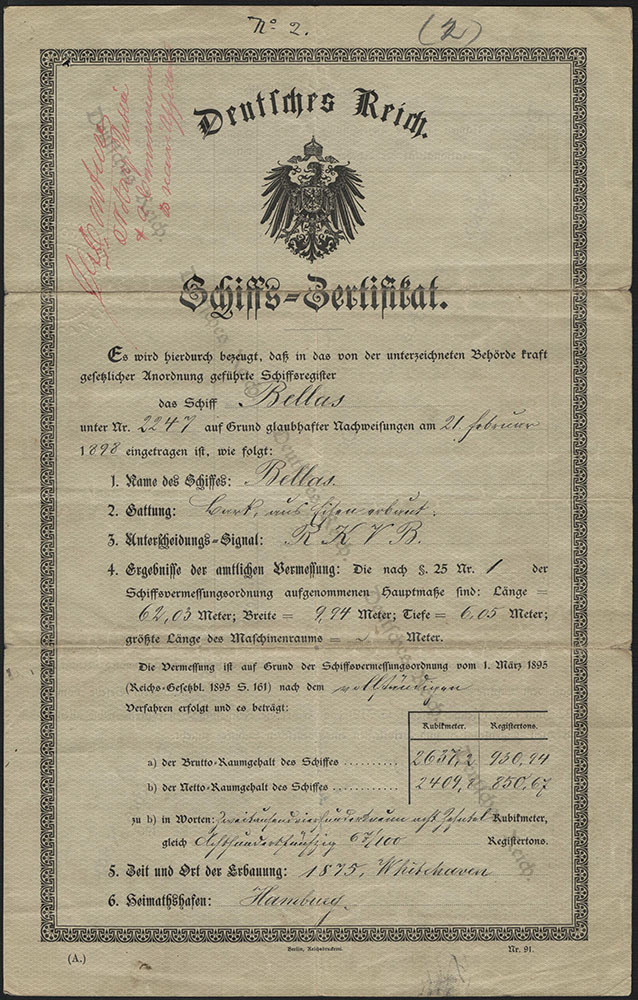 No. 2.
(2)
Deutsches Reich.
Schiffs=Zertifikat.
Es wird hierdurch bezeugt, daß in das von der unterzeichneten Behörde kraft
gesetzlicher Anordnung geführte Schiffsregister
das Schiff Bellas
unter Nr. 2247 auf Grund glaubhafter Nachweisungen am 21. Februar
1898 eingetragen ist, wie folgt:
1. Name des Schiffes: Bellas
2. Gattung: Bark, aus Eisen erbaut.
3. Unterscheidungs=Signal: R K V B.
4. Ergebnisse der amtlichen Vermessung: Die nach §. 25 Nr. 1 der
Schiffsvermessungsordnung aufgenommenen Hauptmaße sind: Länge =
62,03 Meter; Breite = 9,94 Meter; Tiefe = 6,05 Meter;
größte Länge des Maschinenraums = Meter.
Die Vermessung ist auf Grund der Schiffsvermessungsordnung vom 1. März 1895
(Reichs=Gesetzbl. 1895 S. 161) nach dem vollständigen
Verfahren erfolgt und es beträgt:
Kubikmeter. Registertons.
a) der Brutto=Raumgehalt des Schiffes .......... 2637,2 930,94
b) der Netto=Raumgehalt des Schiffes .......... 2409,8 850,67
zu b) in Worten: Zweitausendvierhundertneun acht Zehntel Kubikmeter,
gleich Achthundertfünfzig 67/100 Registertons.
5. Zeit und Ort der Erbauung: 1875, Whitehaven
6. Heimathshafen: Hamburg.
(A.)
Berlin, Reichsdruckerei.
Nr. 91.